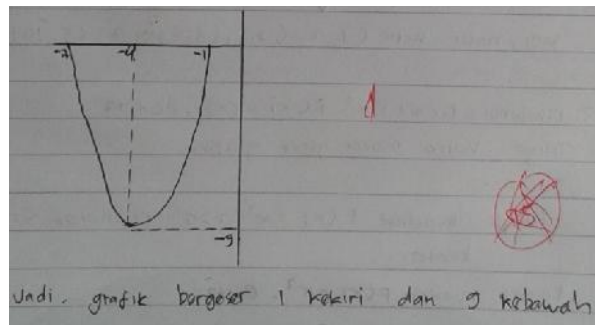 -7 -4 -1
d
-9
Jadi. grafik bergeser 1 kekiri dan 9 kebawah